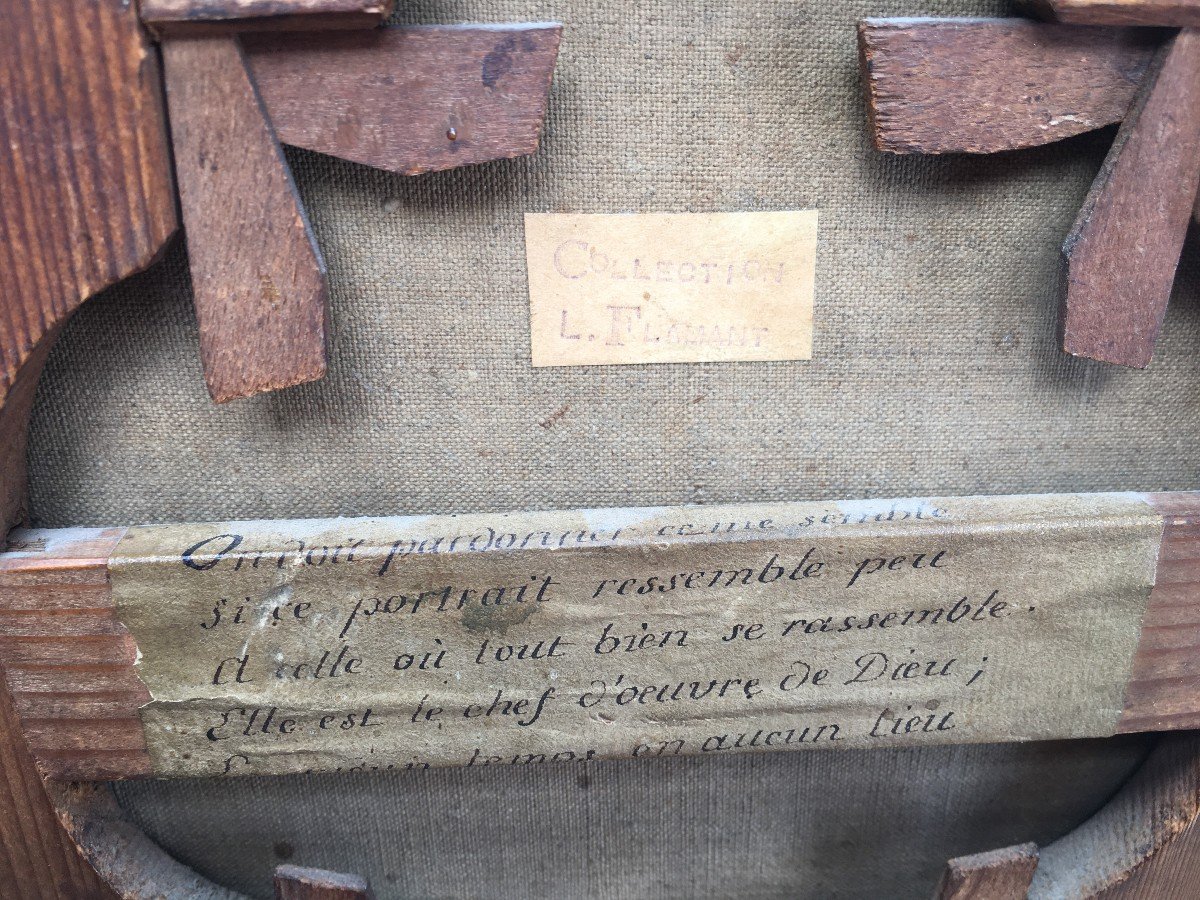 COLLECTION
L. FLAMANT
On doit pardonner ce me semble
si ce portrait ressemble peu
A celle où tout bien se rassemble.
Elle est le chef d'oeuvre de Dieu ;
temps en aucun lieu